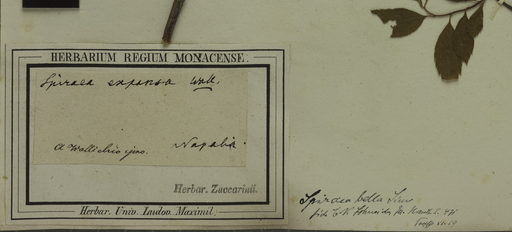 HERBARIUM REGIUM MONACENSE.
Spiraea expansa Wall.
A Wallichio ipso. Napalia.
Herbar. Zuccarinii.
Herbar. Univ. Ludov. Maximil.
Spiraea bella Sims
fide C. K. Schneider